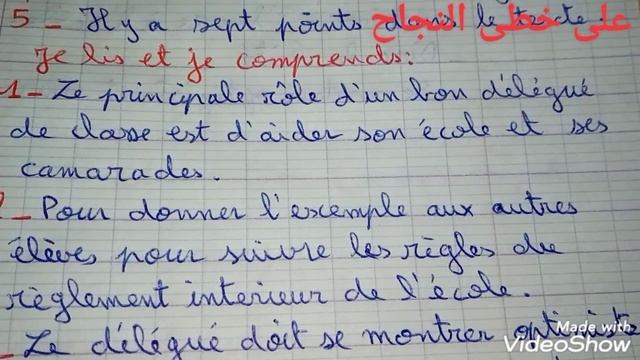 5 - Il y a sept points dans le texte.
على خطى النجاح
Je lis et je comprends:
1 - Le principale rôle d'un bon délégué
de classe est d'aider son école et ses
camarades.
- Pour donner l'exemple aux autres
élèves pour suivre les règles du
règlement interieur de l'école.
- Le délégué doit se montrer optimiste
Made with
VideoShow